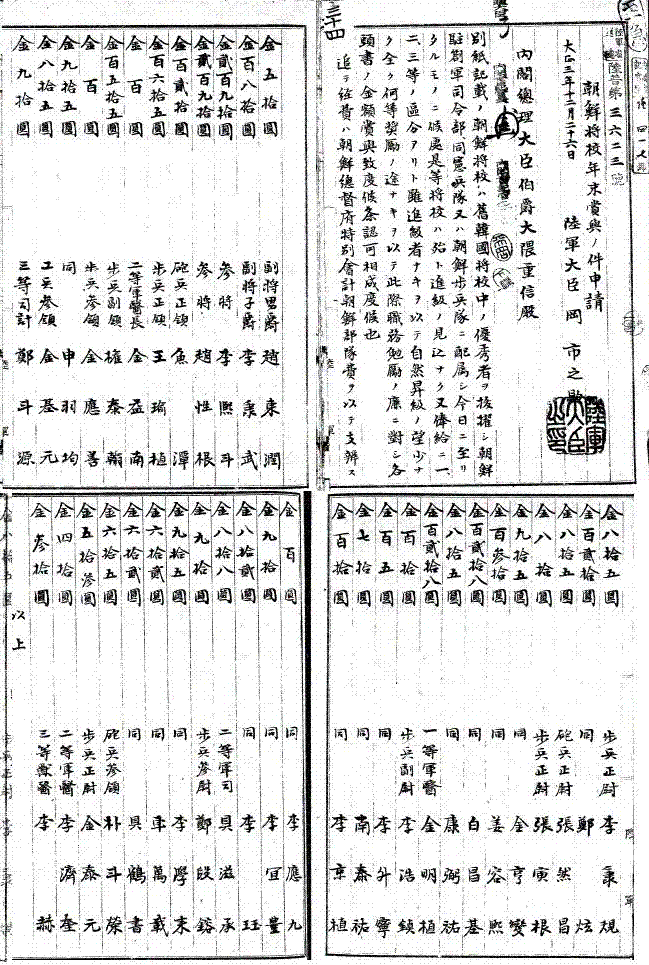 陸普第三六二三號
朝鮮将校年末賞與ノ件申請
大正三年十二月二十六日 陸軍大臣岡市之助
陸軍大臣之印
内閣總理大臣伯爵大隈重信殿
別紙記載ノ朝鮮将校ハ舊韓國将校中ノ優秀者ヲ抜擢シ朝鮮
駐劄軍司令部同憲兵隊又ハ朝鮮歩兵隊ニ配属シ今日ニ至リ
タルモノニ候處是等将校ハ殆ト進級ノ見込ナク又俸給ニ一、
二、三等ノ區分アリト雖進級者ナキヲ以テ自然昇級ノ望少ナ
ク全ク何等奨勵ノ途ナキヲ以テ此際職務勉勵ノ廉ニ對シ各
頭書ノ金額賞與致度候条認可相成度候也
追テ経費ハ朝鮮總督府特別會計朝鮮部隊費ヲ以テ支辨ス
三十四
金五拾圓 副将男爵 趙東潤
金百八拾圓 副将子爵 李秉武
金貳百九拾圓 参将 李熙斗
金貳百九拾圓 参将 趙性根
金百貳拾圓 砲兵正領 魚潭
金百六拾五圓 歩兵正領 王瑜植
金百圓 二等軍醫長 金益南
金百五拾五圓 歩兵副領 權泰翰
金百圓 歩兵参領 金應善
金九拾五圓 同 申羽均
金八拾五圓 工兵参領 金基元
金九拾圓 三等司計 鄭斗源
金八拾五圓 歩兵正尉 李秉規
金百貳拾圓 同 鄭炫
金八拾五圓 砲兵正尉 張然昌
金八拾圓 歩兵正尉 張寅根
金九拾五圓 同 金亨燮
金百参拾圓 同 姜容熙
金百貳拾八圓 同 白昌基
金八拾五圓 同 康弼祐
金百貳拾八圓 一等軍醫 金明植
金百拾圓 歩兵副尉 李浩鎮
金百五圓 同 李升寧
金七拾圓 同 南泰祐
金百拾圓 同 李京植
金百圓 同 李應九
金九拾圓 同 李宜豊
金八拾貳圓 同 李珏
金八拾八圓 二等軍司 具滋承
金九拾圓 歩兵参尉 鄭殷鎔
金九拾五圓 同 李學来
金六拾貳圓 同 車萬載
金六拾貳圓 同 具鶴書
金六拾五圓 砲兵参領 朴斗榮
金五拾参圓 歩兵正尉 金泰元
金四拾圓 二等軍醫 李濟奎
金参拾圓 三等獣醫 李赫
以上